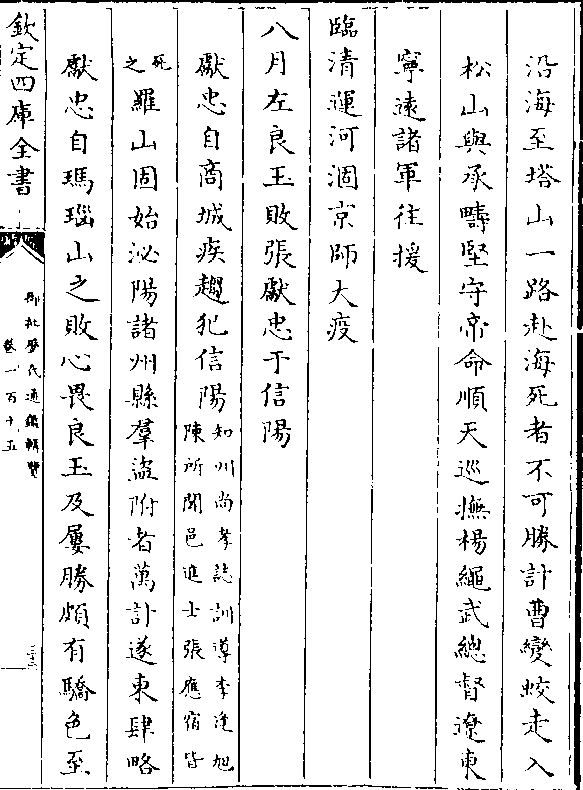 沿海至塔山一路赴海死者不可勝計曹變蛟走入
松山與承疇堅守帝命順天巡撫楊繩武總督遼東
寧遠諸軍往援
臨清運河涸京師大疫
八月左良玉敗張獻忠于信陽
獻忠自商城疾趨犯信陽知州尚孝誌訓導李逢旭
陳所聞邑進士張應宿皆
死之羅山固始泌陽諸州縣羣盜附者萬計遂東肆略
獻忠自瑪瑙山之敗心畏良玉及屢勝頗有驕色至
欽定四庫全書
御批歷代通鑑輯覽
卷一百十五
三十三